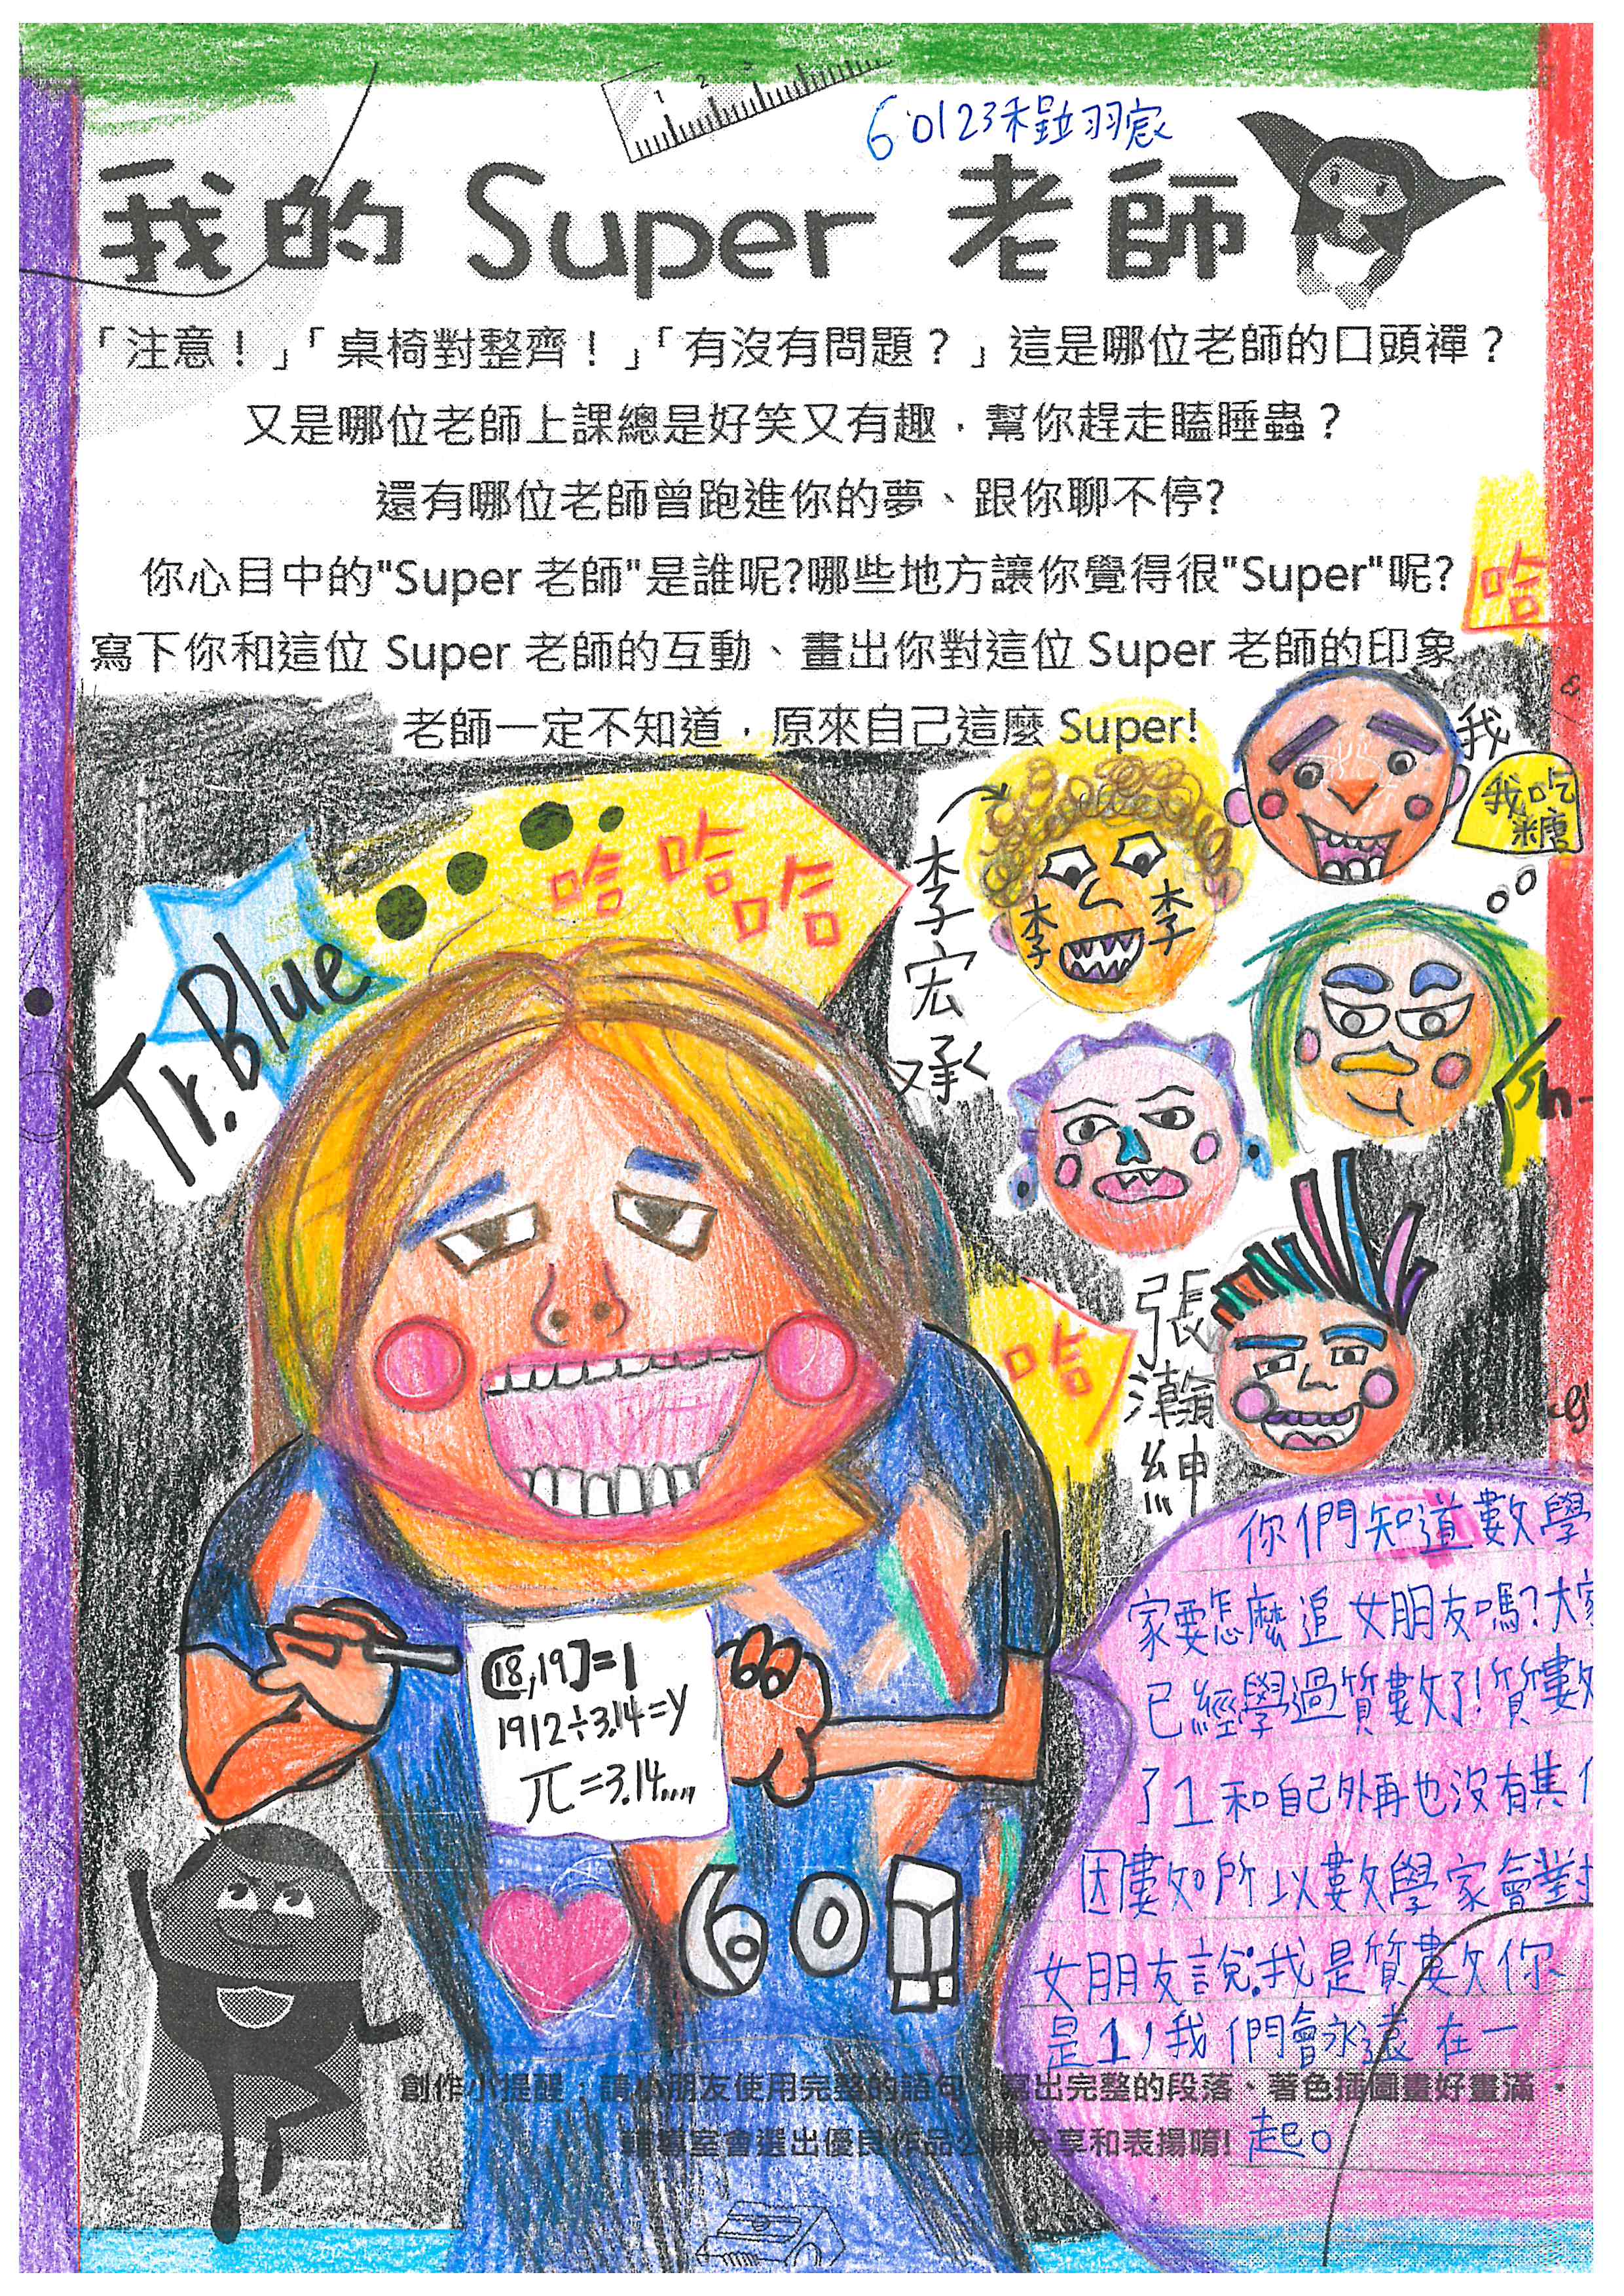 1 2 3
60123程羽宸
我的 Super 老師
「注意！」「桌椅對整齊！」「有沒有問題？」這是哪位老師的口頭禪？
又是哪位老師上課總是好笑又有趣，幫你趕走瞌睡蟲？
還有哪位老師曾跑進你的夢、跟你聊不停?
你心目中的"Super 老師"是誰呢?哪些地方讓你覺得很"Super"呢?
哈
寫下你和這位 Super 老師的互動、畫出你對這位 Super 老師的印象
老師一定不知道，原來自己這麼 Super!
我
我吃
糖
哈哈哈
李宏承
李 李
Tr.Blue
哈
張瀚紳
你們知道數學
家要怎麼追女朋友嗎?大家
已經學過質數了!質數
了1和自己外再也沒有其
因數如所以數學家會對
女朋友說:我是質數你
是1,我們會永遠在一
起。
[18,19]=1
1912÷3.14=y
π=3.14.....
601
創作小提醒：請小朋友使用完整的語句、寫出完整的段落、著色插圖畫好畫滿，
輔導室會選出優良作品公開分享和表揚唷!